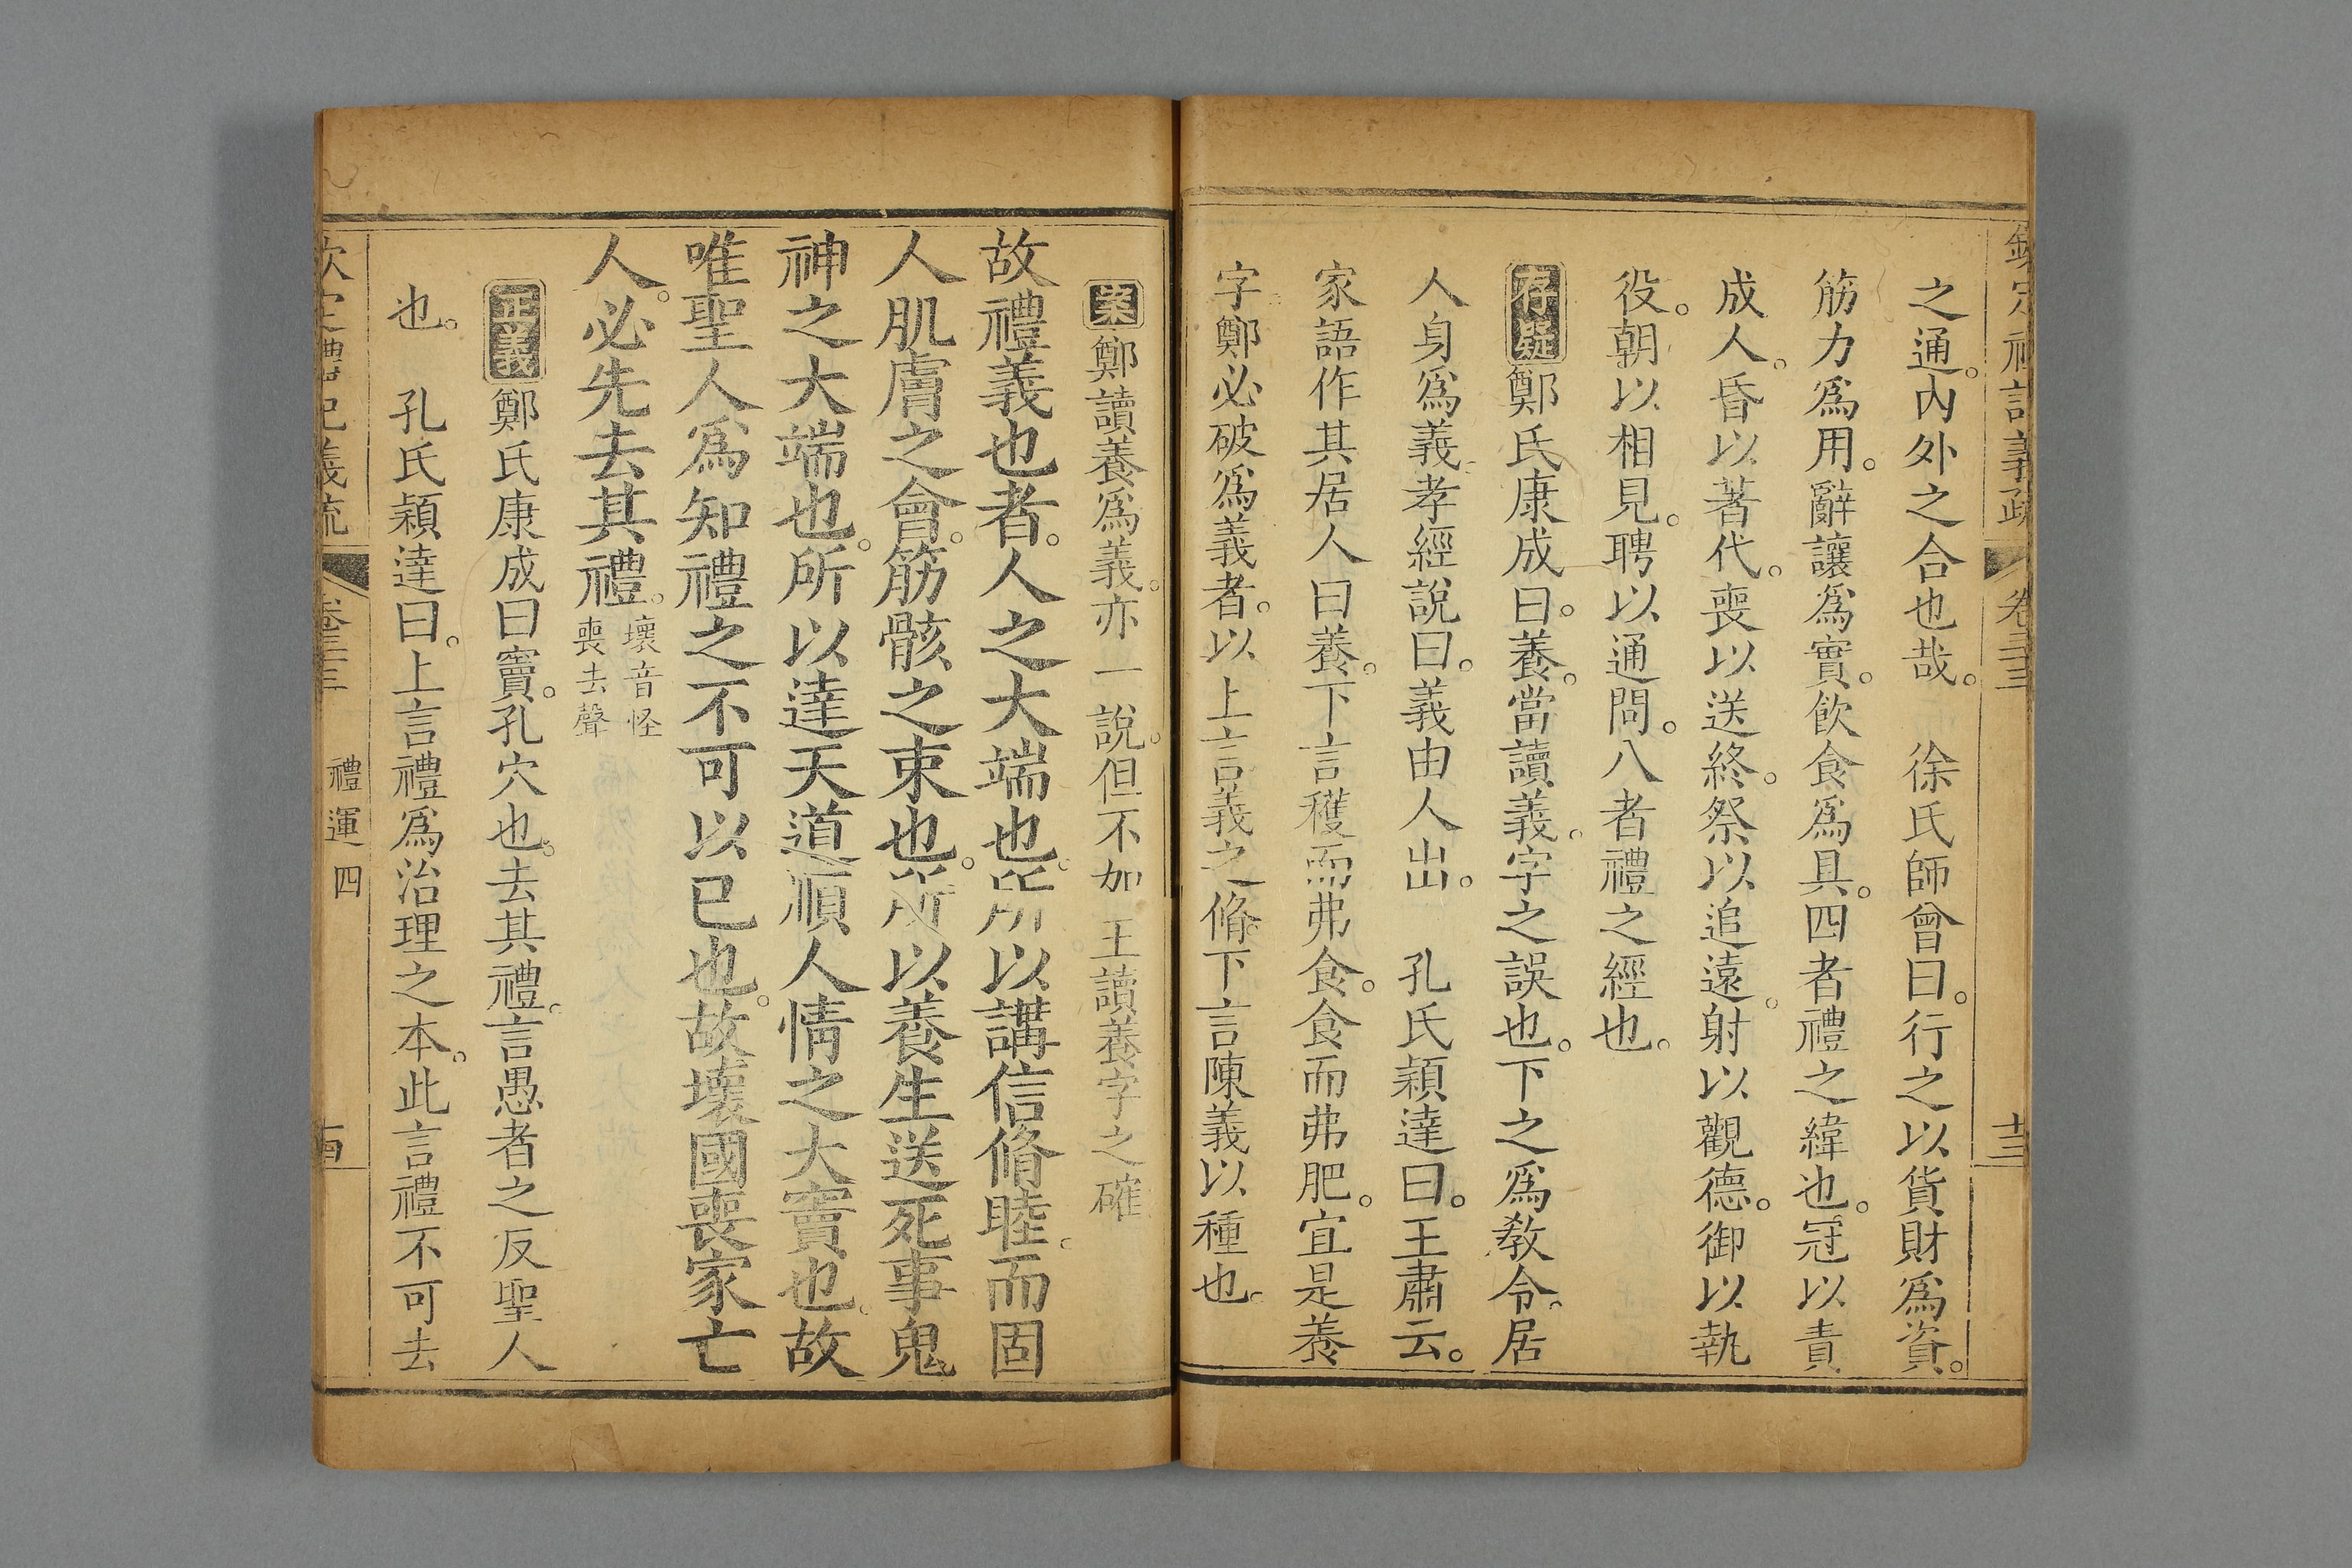 之通。內外之合也哉。 徐氏師曾曰。行之以貨財爲資。
筋力爲用。辭讓爲實。飮食爲具。四者禮之緯也。冠以責
成人。昏以著代。喪以送終。祭以追遠。射以觀德。御以執
役。朝以相見。聘以通問。八者禮之經也。
存疑 鄭氏康成曰。養。當讀義。字之誤也。下之爲敎令。居
人身爲義。孝經說曰。義由人出。 孔氏穎達曰。王肅云。
家語作其居人曰養。下言穫而弗食。食而弗肥。宜是養
字。鄭必破爲義者。以上言義之脩。下言陳義以種也。
案 鄭讀養爲義。亦一說。但不如王讀養字之確
故禮義也者。人之大端也。所以講信脩睦。而固
人肌膚之會。筋骸之束也。所以養生送死事鬼
神之大端也。所以達天道順人情之大竇也。故
唯聖人爲知禮之不可以已也。故壞國喪家亡
人。必先去其禮。壞音怪
喪去聲
正義 鄭氏康成曰竇。孔穴也。去其禮。言愚者之反聖人
也。 孔氏穎達曰。上言禮爲治理之本。此言禮不可去
欽定禮記義疏 卷三十三 禮運四